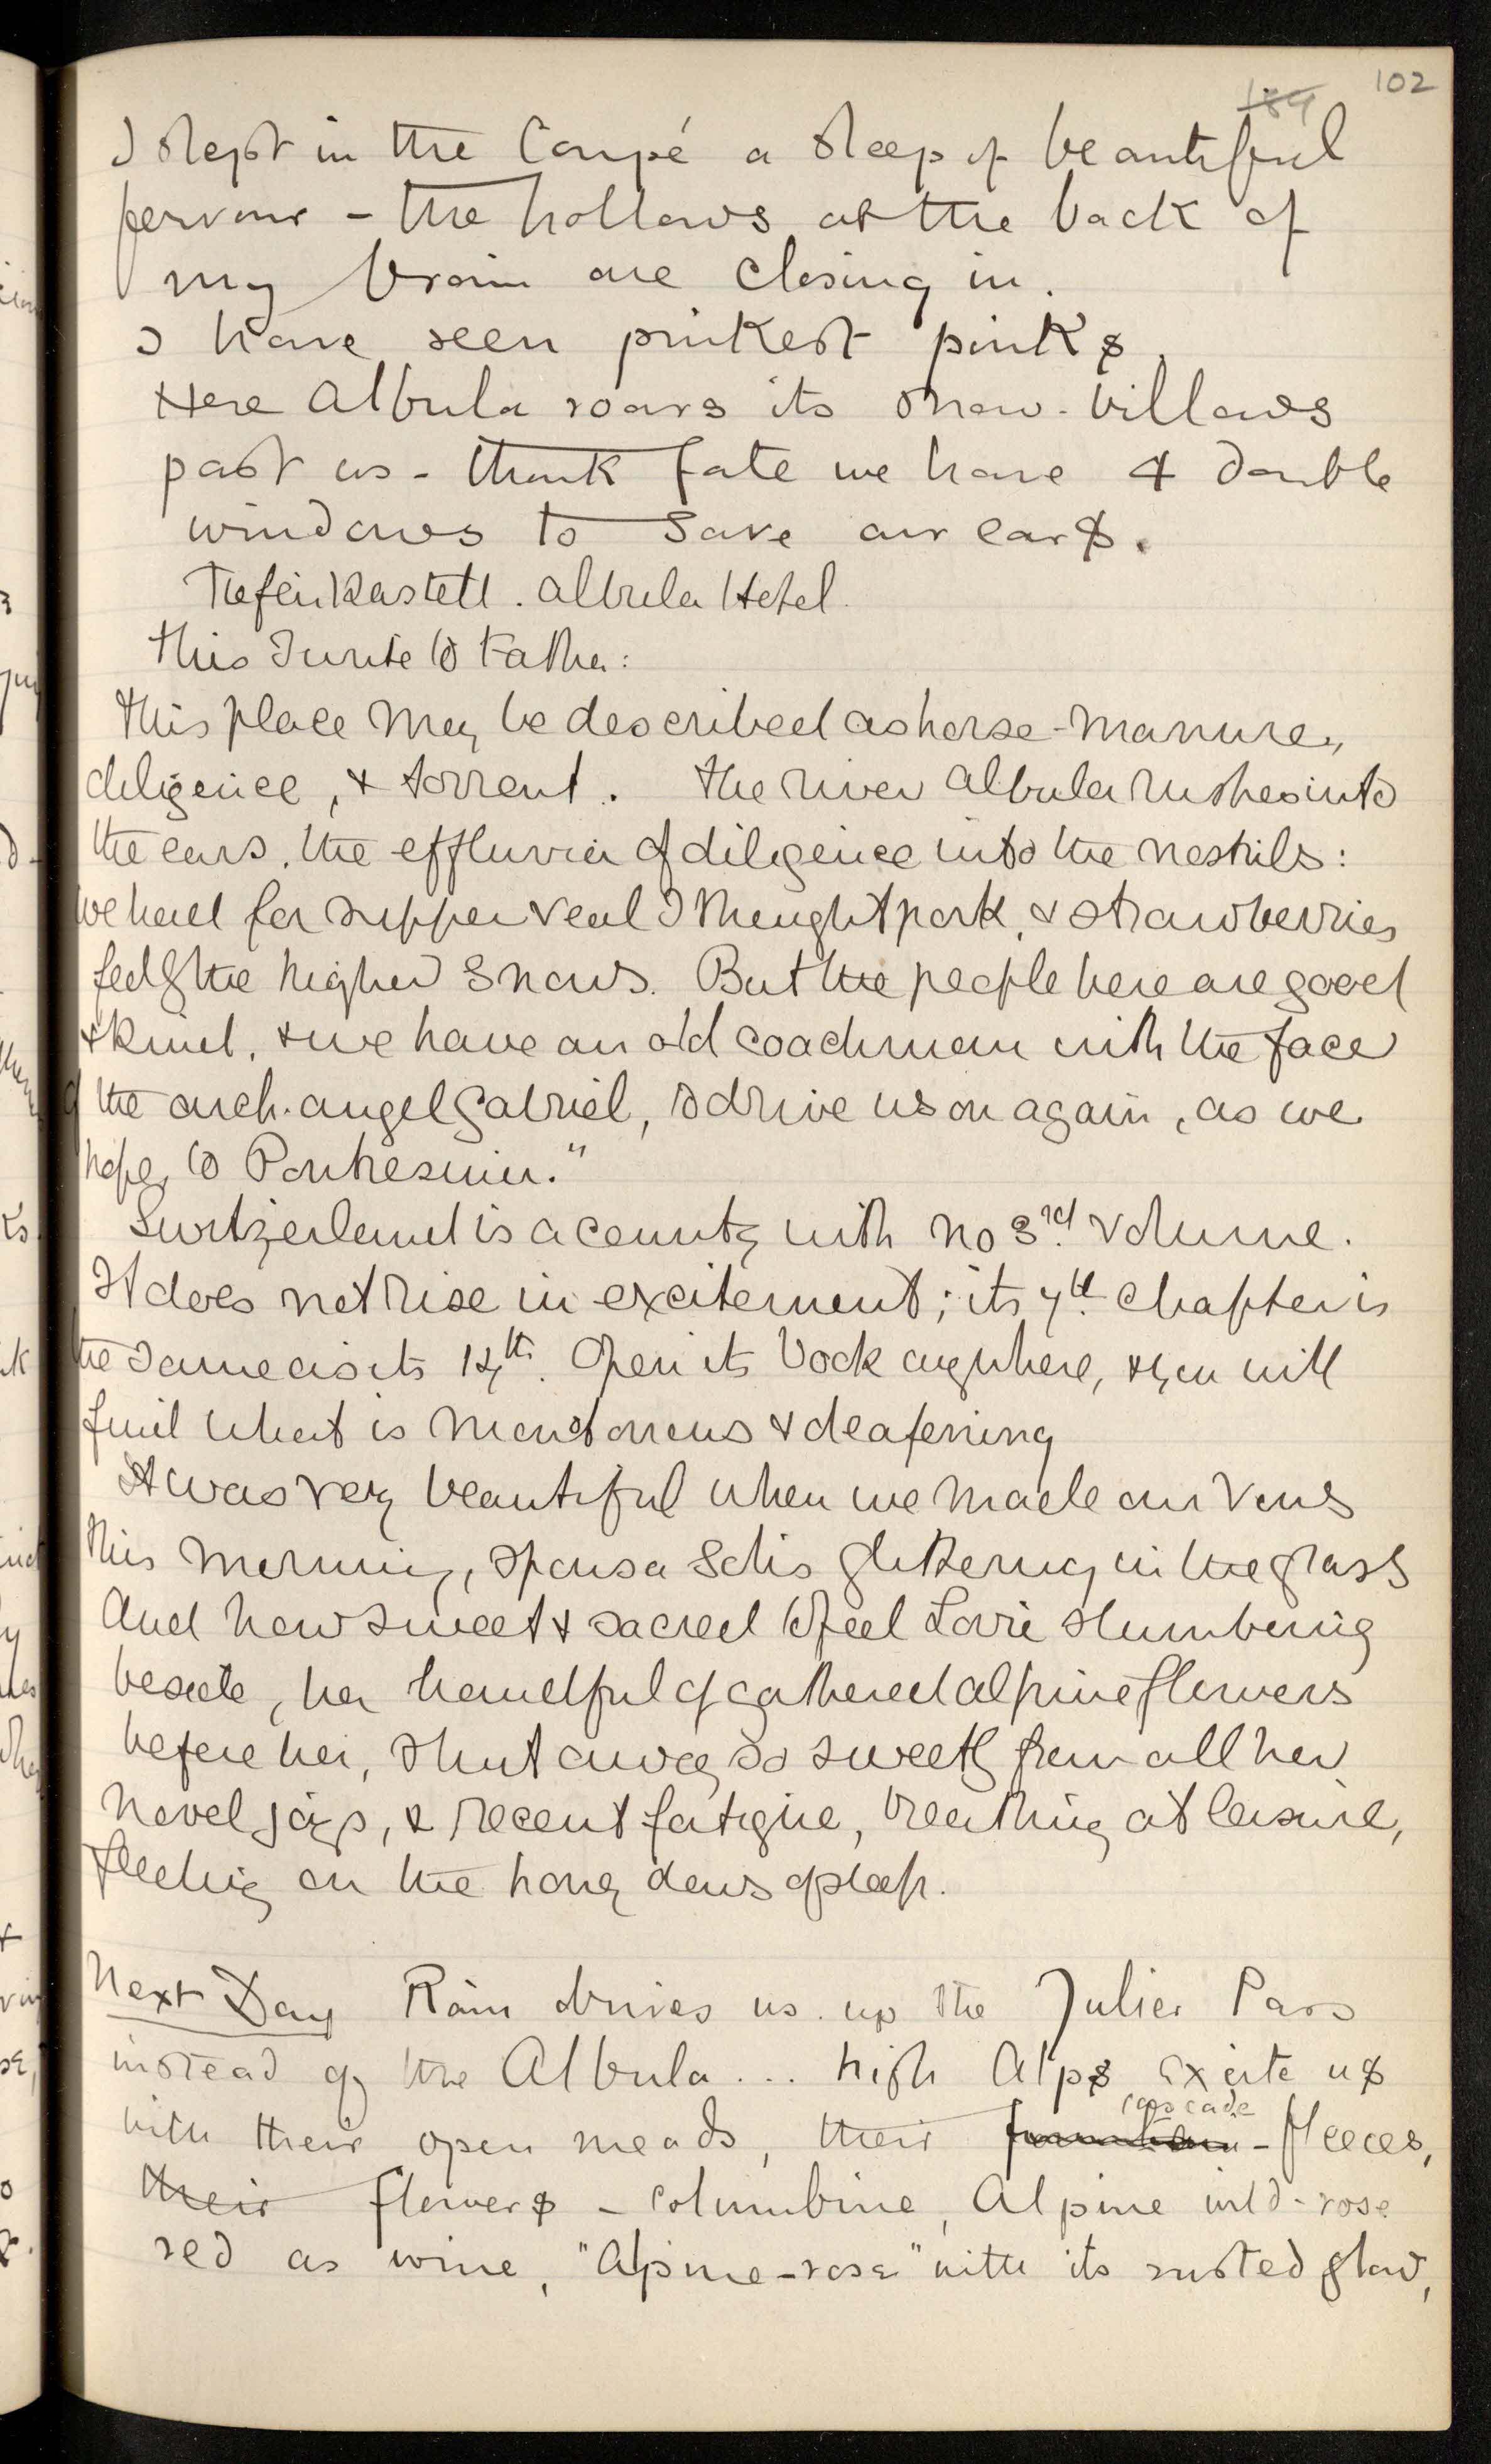 102
189
I slept in the Coupé a sleep of beautiful
fervour - the hollows at the back of
my brain are closing in.
I have seen pinkest pinks,
Here Albula roars its snow-billows
past us - thank fate we have 4 double
windows to save our ears.
Tiefenkastell. Albula Hotel.
This I write to Father:
This place may be described as horse-manure,
diligence, & torrent. The river Albula rushes into
the ears, the effluvia of diligence into the nostrils:
we had for supper veal I thought pork, & strawberries
fed by the higher snows. But the people here are good
& kind, & we have an old coachman with the face
of the arch-angel Gabriel, to drive us on again, as we
hope, to Pontresina."
Switzerland is a country with no 3rd volume.
It does not rise in excitement; its 7th chapter is
the same as its 12th. Open its book anywhere, & you will
find what is monotonous & deafening
It was very beautiful when we made our vows
this morning, sponsa solis glittering in the grass
And how sweet & sacred to feel Love slumbering
beside, her handful of gathered alpine flowers
before her, shut away so sweetly from all her
novel joys, & recent fatigue, breathing at leisure,
feeding on the honey dews of sleep.
Next Day Rain drives us up the Julier Pass
instead of the Albula... high Alps excite us
cascade
with their open meads, their fountain-fleeces,
their flowers - columbine, Alpine wild-rose
red as wine, "Alpine-rose" with its rusted glow,